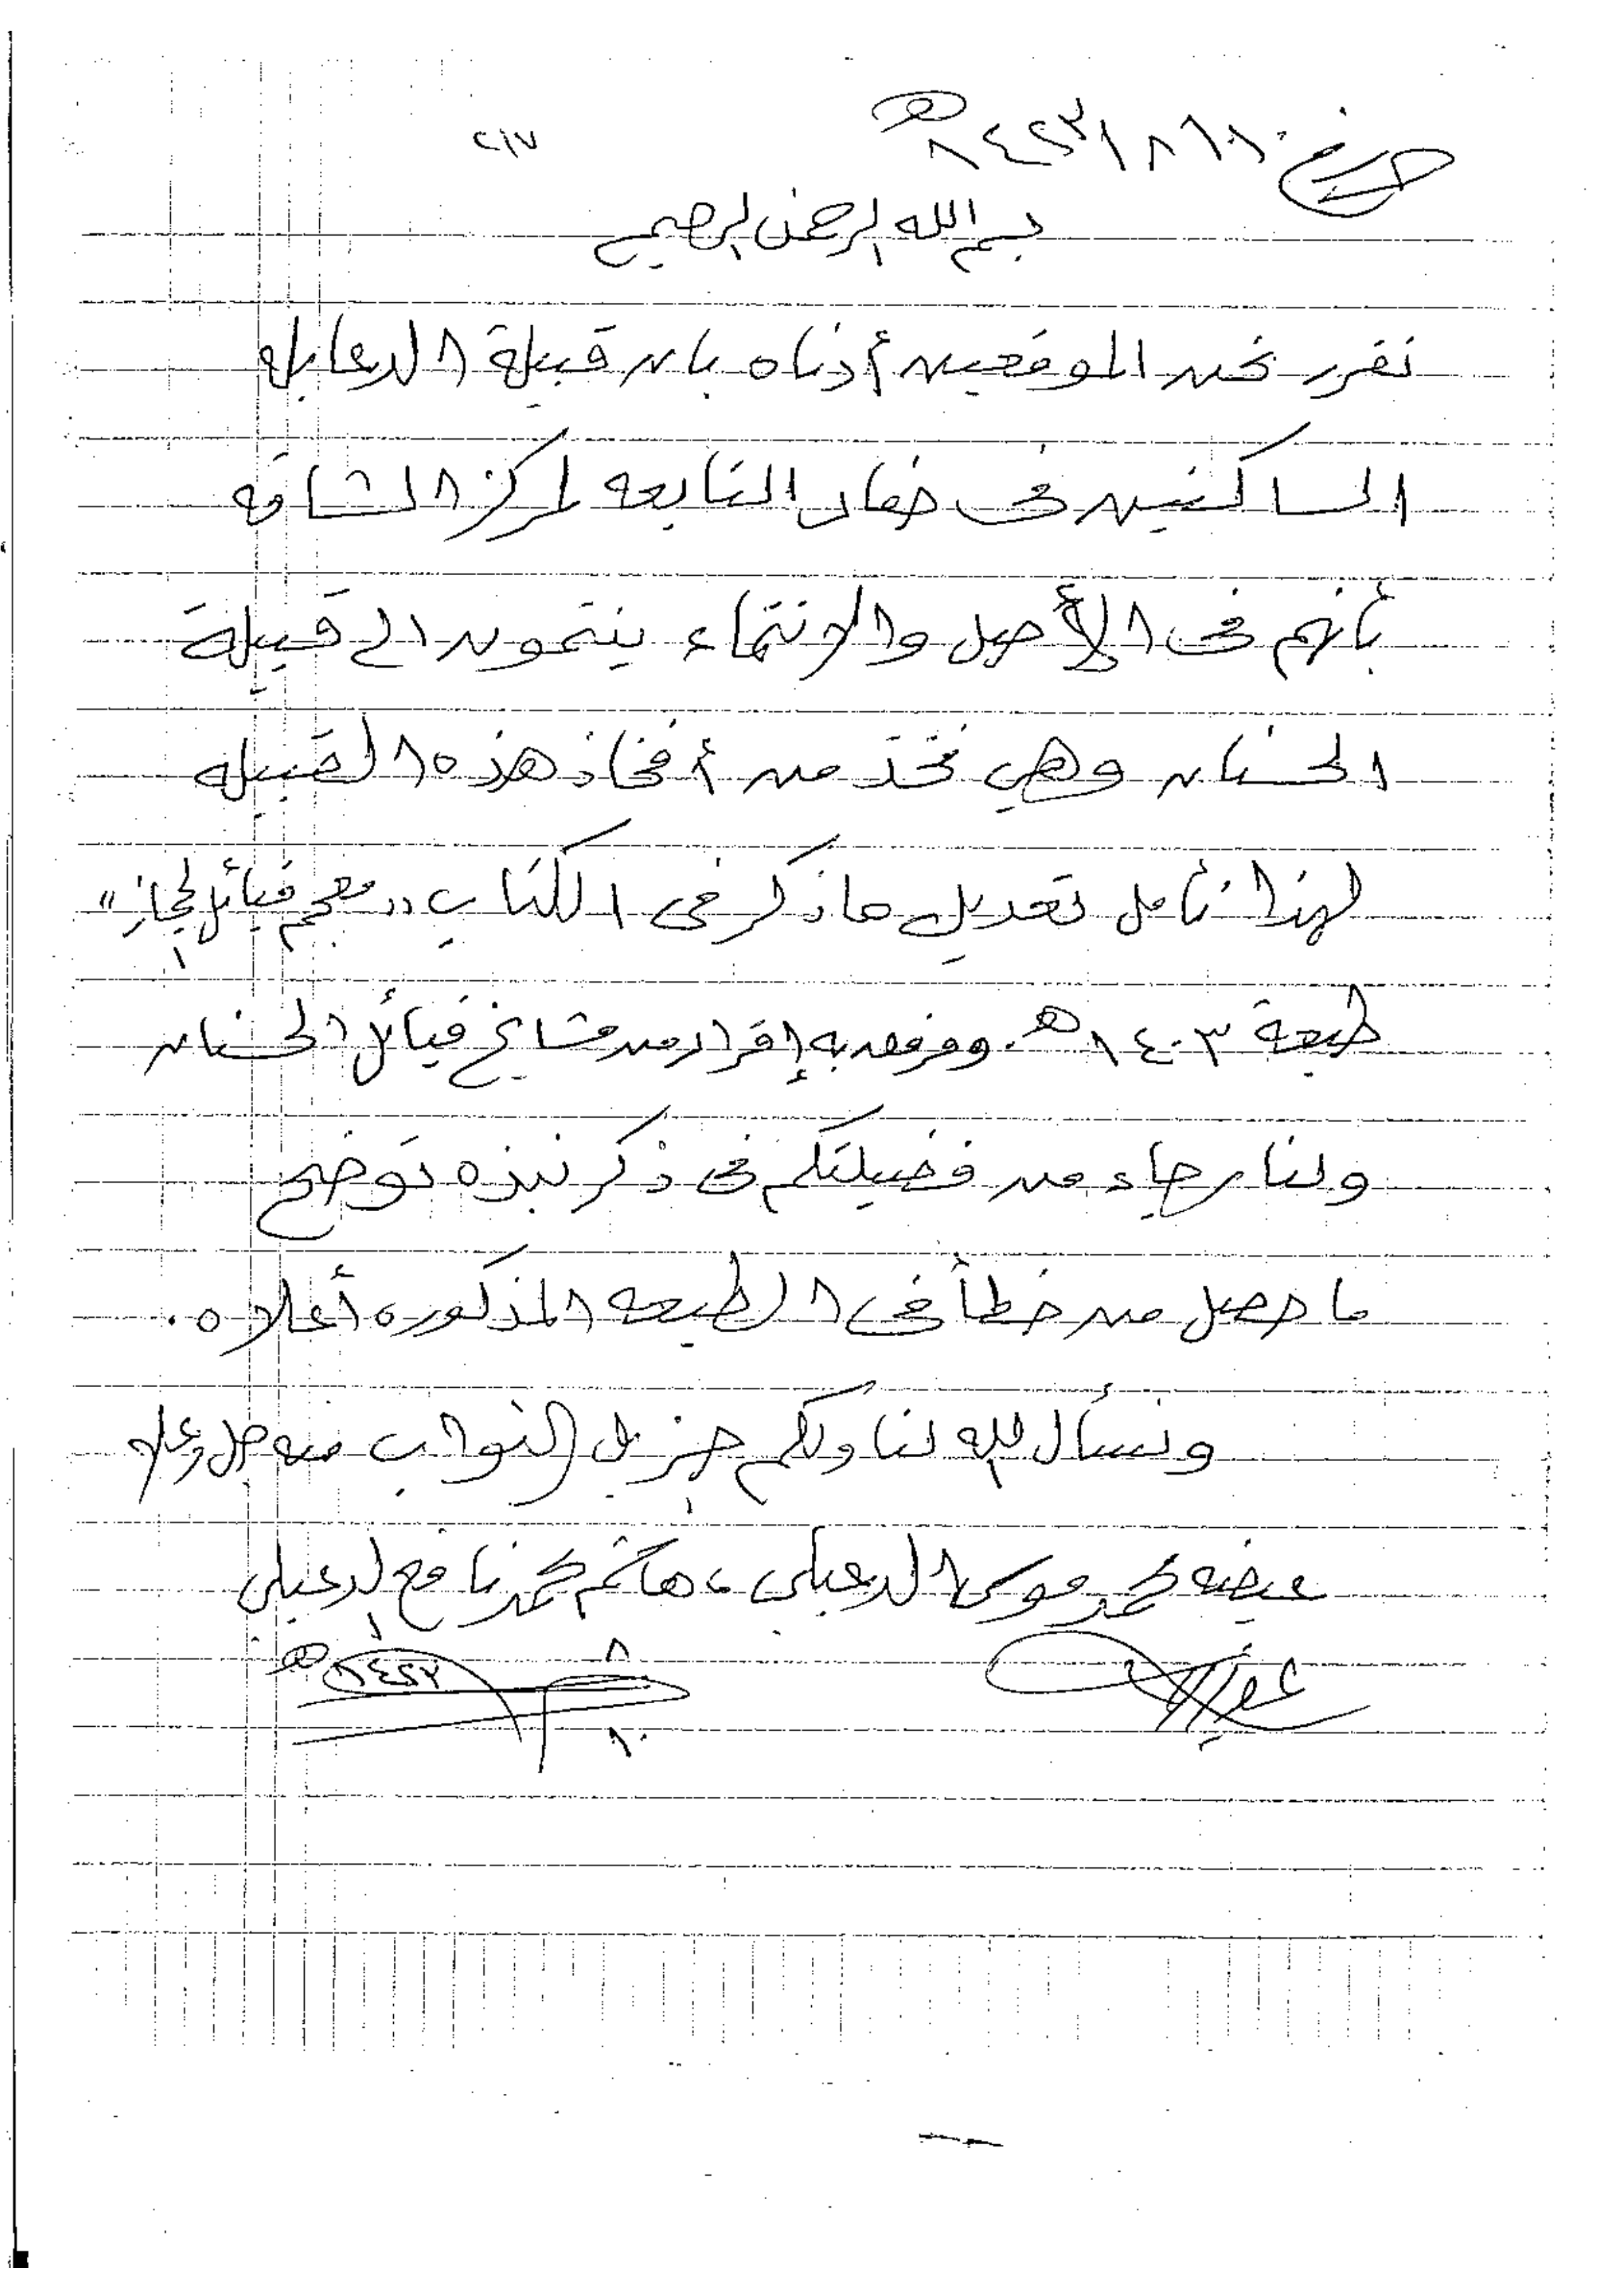 ٢١٧
١٤٢٣/٨/١٠ هـ
بسم الله الرحمن الرحيم
نقرر نحن الموقعين أدناه بان قبيلة الدعابله
الساكنين في حفار التابعه لمركز الشاقه
بأنهم في الأصل والانتماء ينتمون الى قبيلة
الحسنان وهي فخذ من أفخاذ هذه القبيله
لهذا نأمل تعديل ما ذكر في الكتاب "معجم قبائل الحجاز"
طبعة ١٤٠٣هـ. ومرفق به إقرار من مشايخ قبائل الحسنان
ولنا رجاء من فضيلتكم في ذكر نبذه توضح
ما حصل من خطأ في الطبعه المذكوره أعلاه.
ونسأل الله لنا ولكم جزيل الثواب منه جل وعلا
عيضه محمد موسى الدعبلي، هاشم محمد نافع الدعبلي
٨
١٤٢٣ هـ
١٠